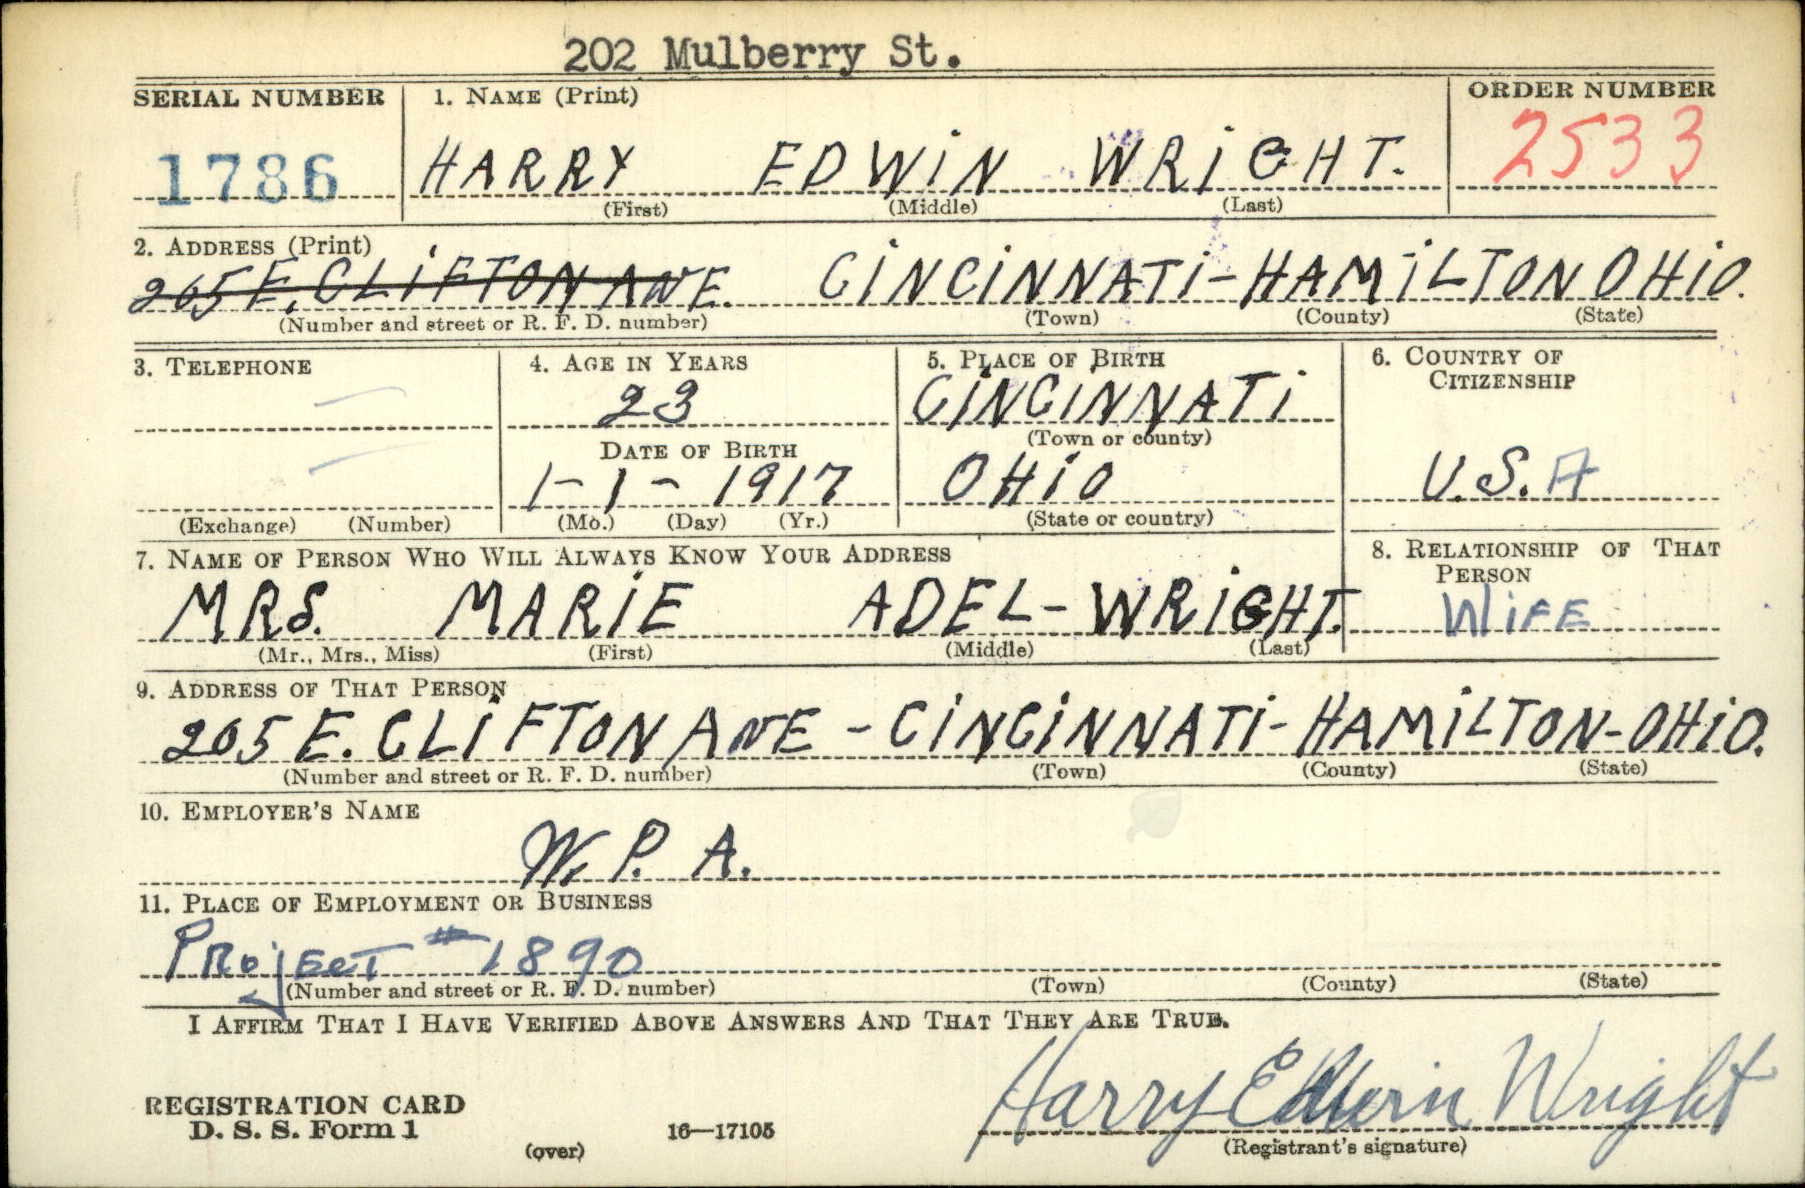 202 Mulberry St.
SERIAL NUMBER 1. NAME (Print) ORDER NUMBER
1786 HARRY EDWIN WRIGHT. 2533
(First) (Middle) (Last)
2. ADDRESS (Print)
205 E. CLIFTON AVE. CINCINNATI-HAMILTON OHIO.
(Number and street or R. F. D. number) (Town) (County) (State)
3. TELEPHONE 4. AGE IN YEARS 5. PLACE OF BIRTH 6. COUNTRY OF CITIZENSHIP
23 CINCINNATI
DATE OF BIRTH (Town or county)
1-1-1917 OHIO U.S.A
(Exchange) (Number) (Mo.) (Day) (Yr.) (State or country)
7. NAME OF PERSON WHO WILL ALWAYS KNOW YOUR ADDRESS 8. RELATIONSHIP OF THAT PERSON
MRS. MARIE ADEL-WRIGHT. WIFE
(Mr., Mrs., Miss) (First) (Middle) (Last)
9. ADDRESS OF THAT PERSON
205 E. CLIFTON AVE - CINCINNATI-HAMILTON-OHIO.
(Number and street or R. F. D. number) (Town) (County) (State)
10. EMPLOYER'S NAME
W. P. A.
11. PLACE OF EMPLOYMENT OR BUSINESS
PRojECT # 1890
(Number and street or R. F. D. number) (Town) (County) (State)
I AFFIRM THAT I HAVE VERIFIED ABOVE ANSWERS AND THAT THEY ARE TRUE.
Harry Edwin Wright
REGISTRATION CARD
D. S. S. Form 1 16—17105 (Registrant's signature)
(over)